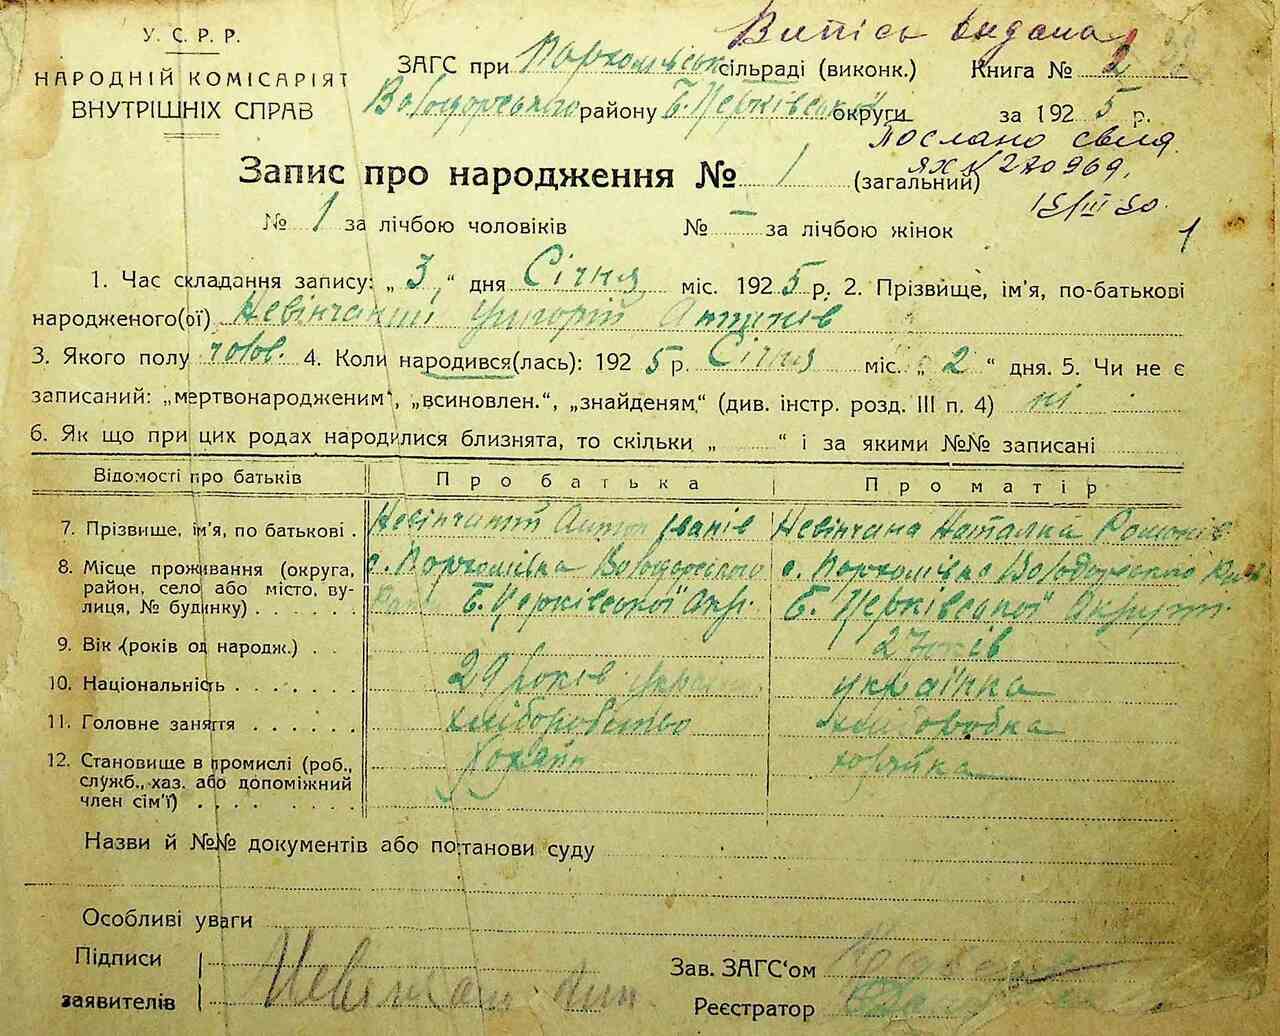 У. С. Р. Р.
НАРОДНІЙ КОМІСАРІЯТ
ВНУТРІШНІХ СПРАВ
Випісь видана
ЗАГС при Пархомівськ сільраді (виконк.) Книга № 2
Володарського району Б. Церківської округи за 1925 р.
Послано свид.
ЯХ № 270969.
Запис про народження № 1 (загальний)
№ 1 за лічбою чоловіків № — за лічбою жінок
1
1. Час складання запису: „ 3 “ дня Січня міс. 1925 р. 2. Прізвище, ім'я, по-батькові
народженого(ої) Невінчаний Григорій Антонів
3. Якого полу чолов. 4. Коли народився(лась): 1925 р. Січня міс. „ 2 “ дня. 5. Чи не є
записаний: „мертвонародженим“, „всиновлен.“, „знайденям“ (див. інстр. розд. III п. 4) ні
6. Як що при цих родах народилися близнята, то скільки „ “ і за якими №№ записані
Відомості про батьків Про батька Про матір
7. Прізвище, ім'я, по батькові . Невінчаний Антон Іванів Невінчана Наталка Романів
8. Місце проживання (округа, с. Пархомівка Володарського с. Пархомівка Володарського
район, село або місто, ву- Б. Церківської Окр. Б. Церківської Округи
лиця, № будинку) . . . . .
9. Вік (років од народж.) . . 27 років
10. Національність . . . . . . 29 років україн. українка
11. Головне заняття . . . . . . хліборобство хліборобка
12. Становище в промислі (роб., хазяїн хазяйка
служб., хаз. або допоміжний
член сім'ї) . . . . . . . .
Назви й №№ документів або постанови суду
Особливі уваги
Підписи
Зав. ЗАГС'ом
заявителів
Реєстратор